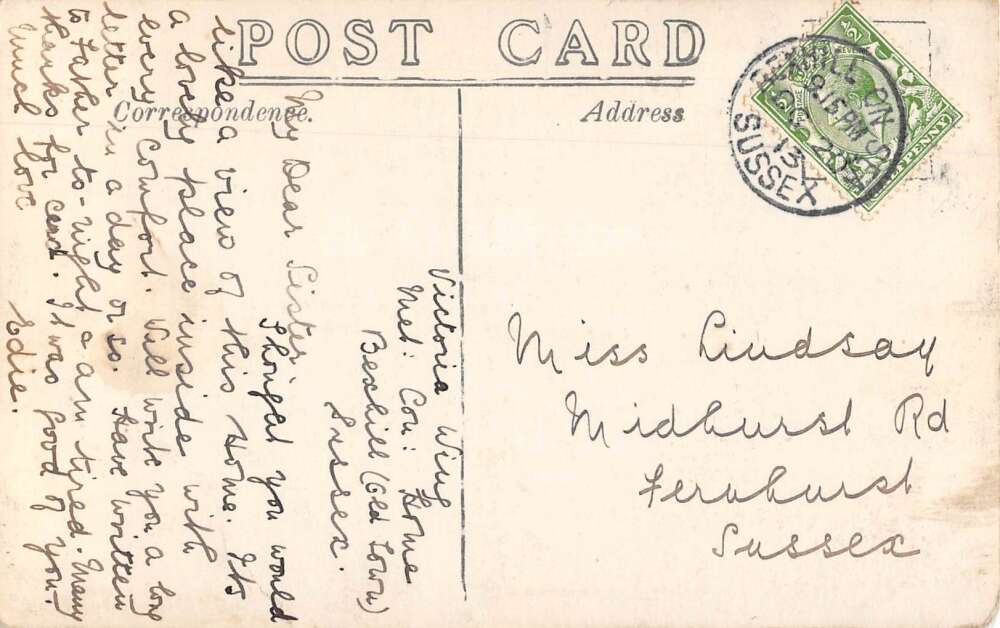 POST CARD
Correspondence.
Address
BEXHILL ON SEA
8.15 PM
OC 20
13
SUSSEX
REVENUE
PENNY
Victoria Wing
Met: Con: Home
Bexhill (Old Town)
Sussex.
My Dear Sister,
Thought you would
like a view of this Home. Its
a lovely place inside with
every comfort. Will write you a long
letter in a day or so. Have written
to Father to-night & am tired. Many
thanks for card. It was good of you.
Much love
Edie.
Miss Lindsay
Midhurst Rd
Fernhurst
Sussex